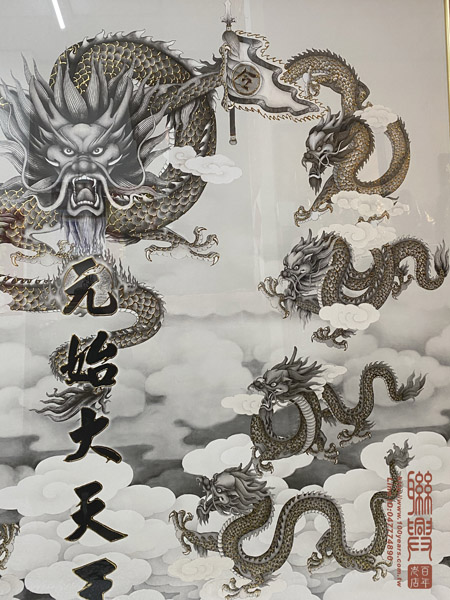 令
元始大天王
聯興
www.100years.com.tw
百年老店